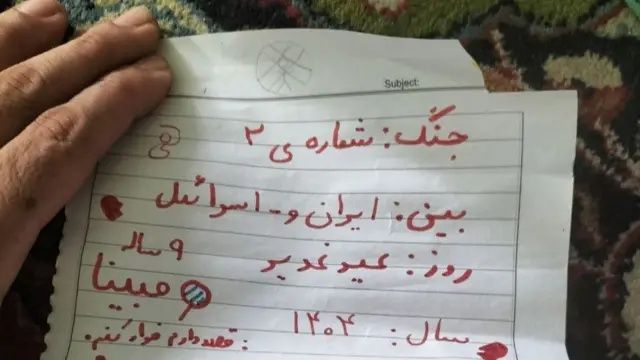 Subject:
جنگ: شماره ی ۲
بین: ایران و- اسرائیل
روز: عید غدیر
۹ ساله
مبینا
سال: ۱۴۰۴
قصد دارم فرار کنم: